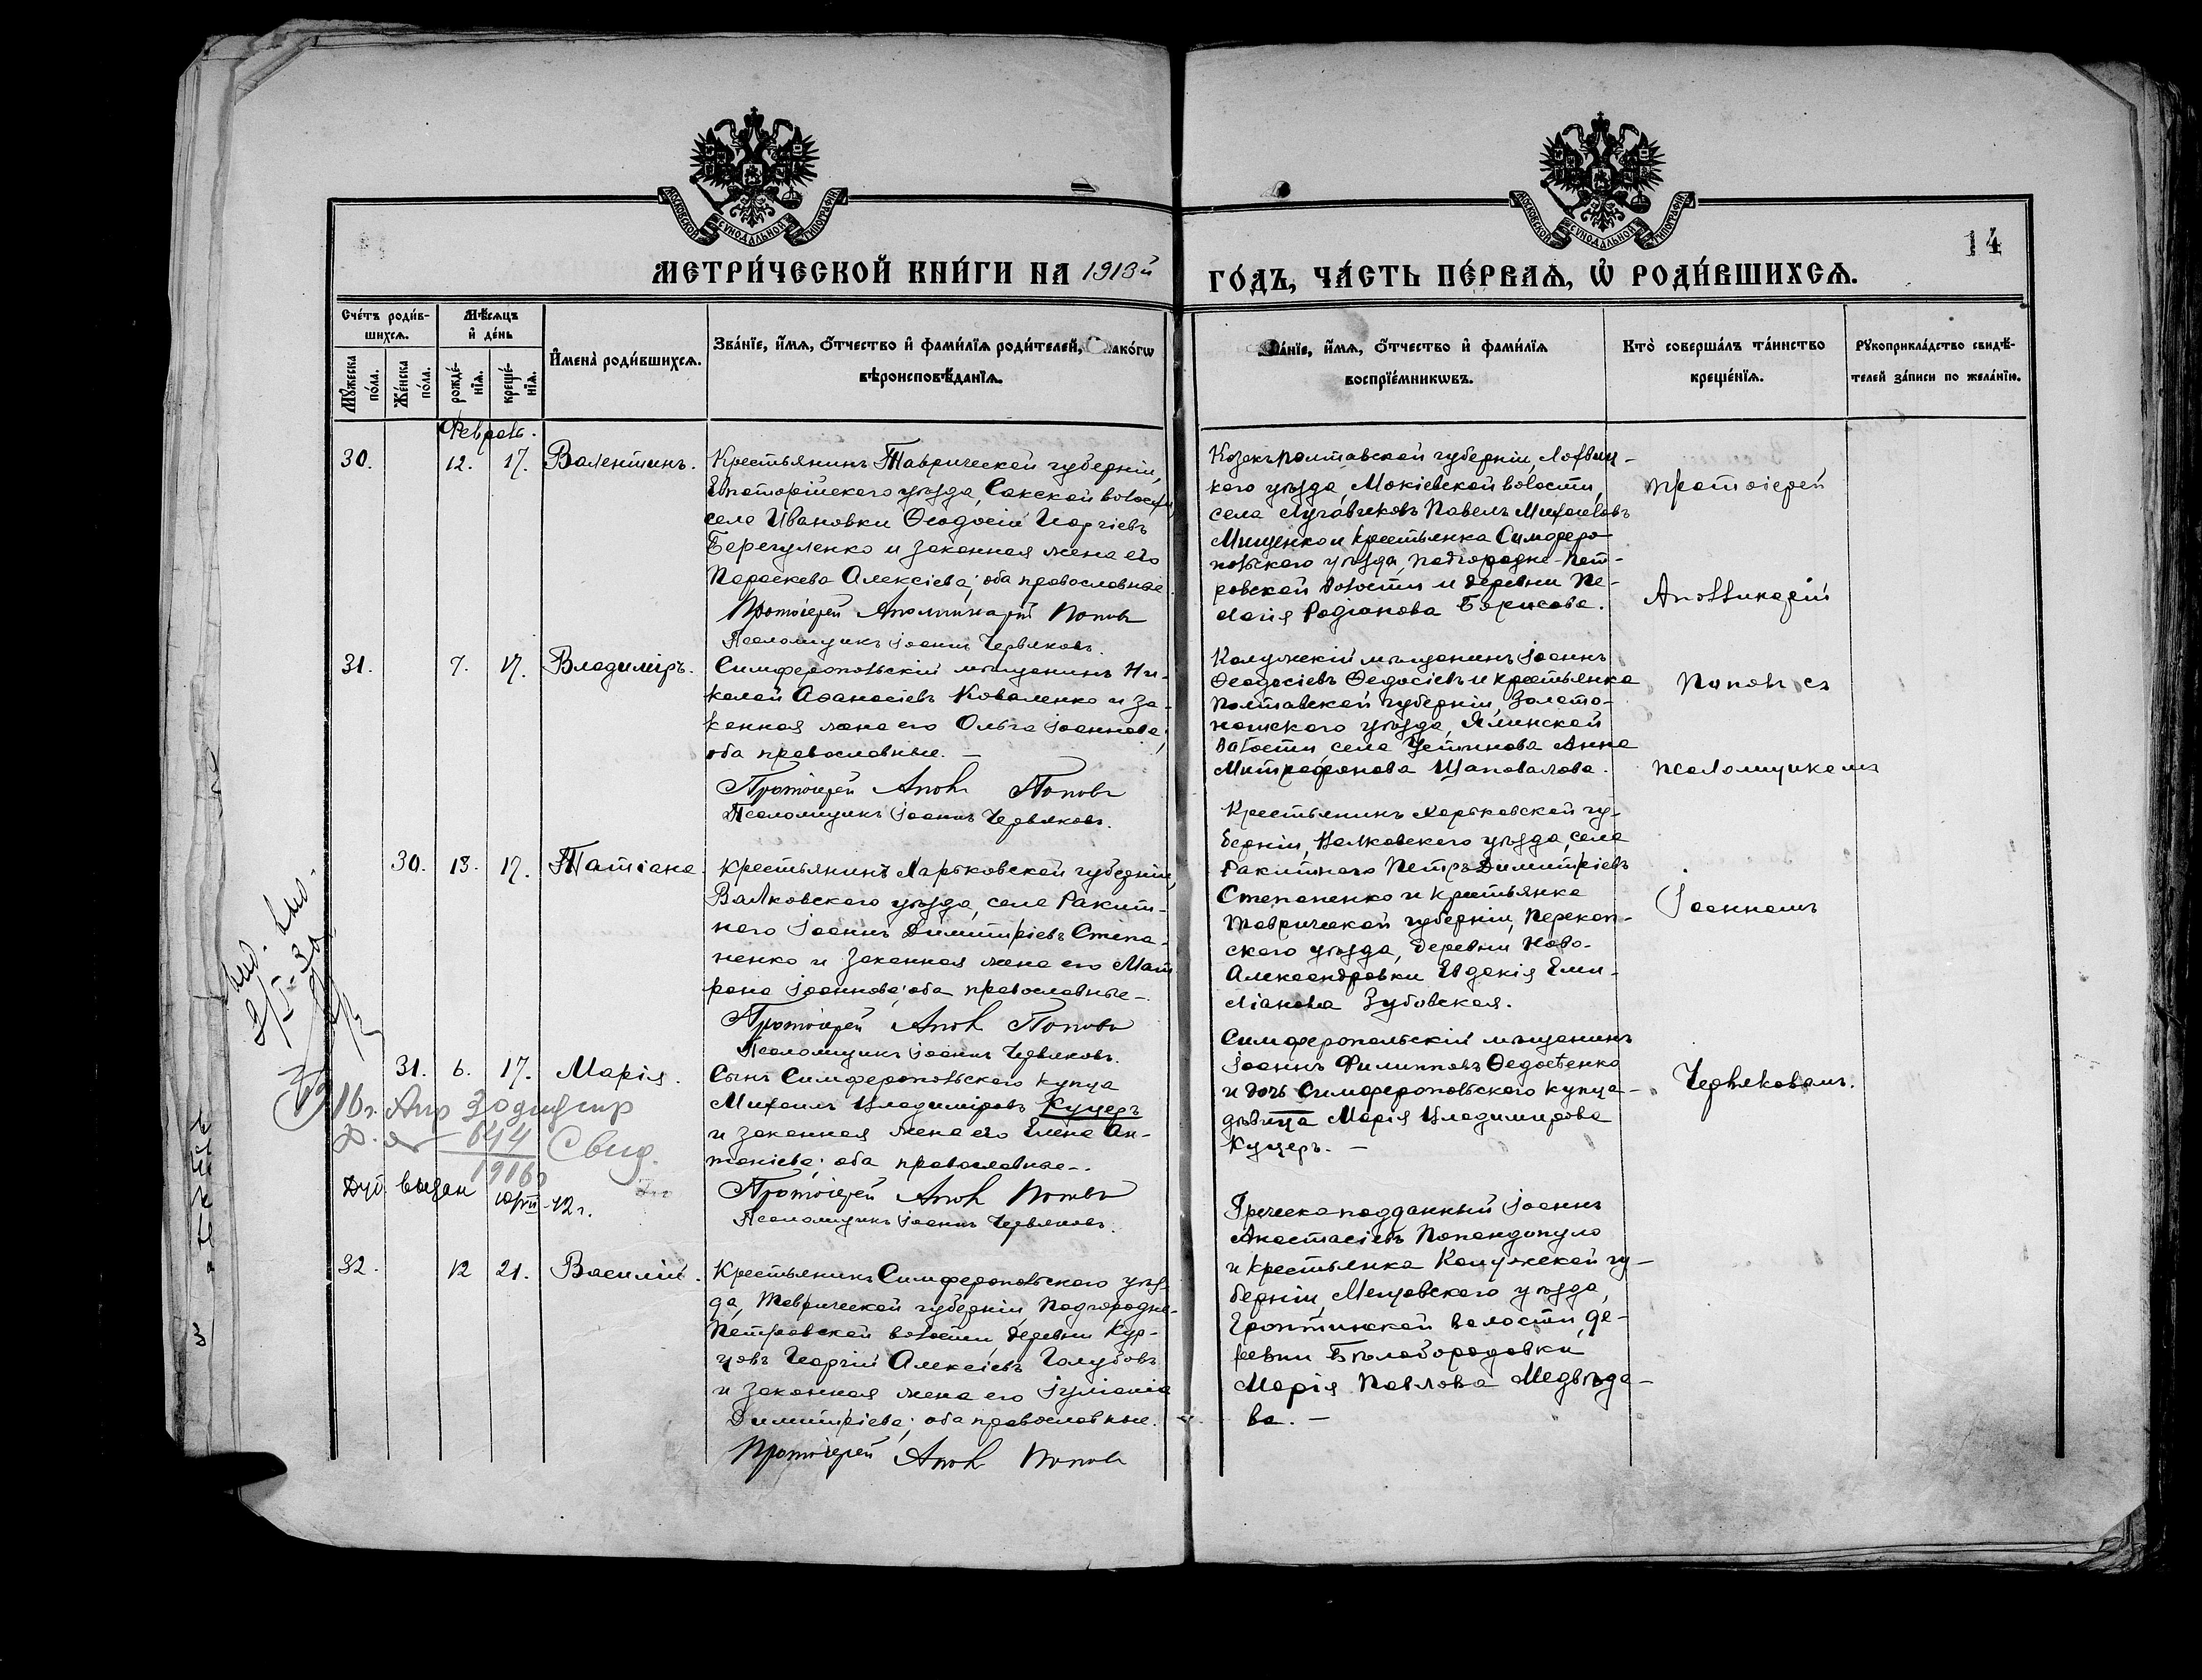 МОСКОВСКОЙ СѴНОДАЛЬНОЙ ТИПОГРАФІИ
МОСКОВСКОЙ СѴНОДАЛЬНОЙ ТИПОГРАФІИ
14
МЕТРИ́ЧЕСКОЙ КНИ́ГИ НА 1913й
ГО́ДЪ, ЧА́СТЬ ПЕ́РВАѦ, Ѡ҆ РОДИ́ВШИХСѦ.
Сче́тъ роди́в-
шихсѧ.
Мꙋ́жеска по́ла.
Же́нска по́ла.
Мѣ́сѧцъ
и҆ де́нь
рожде́-
нїѧ.
креще́-
нїѧ.
И҆мена̀ роди́вшихсѧ.
Зва́нїе, и҆́мѧ, ѻ҆́тчество и҆ фами́лїѧ роди́телей, и҆ како́гѡ
вѣроисповѣ́данїѧ.
Зва́нїе, и҆́мѧ, ѻ҆́тчество и҆ фами́лїѧ
воспрїе́мникѡвъ.
Кто̀ соверша́лъ та́инство
креще́нїѧ.
Рꙋкоприкла́дство свидѣ́-
телей за́писи по жела́нїю.
Февраль.
30. 12. 17. Валентинъ.
Крестьянинъ Таврической губерніи,
Евпаторійскаго уѣзда, Сакской волости,
села Ивановки Ѳеодосій Георгіевъ
Берегуленко и законная жена его
Параскева Алексіева; оба православные.
Протоіерей Аполлинарій Поповъ
Псаломщикъ Іоаннъ Червяковъ.
Козакъ Полтавской губерніи, Лохвиц-
каго уѣзда, Мокіевской волости,
села Луговиковъ Павелъ Михаиловъ
Мищенко и крестьянка Симферо-
польскаго уѣзда, Подгородне-Пет-
ровской волости и деревни Пе-
лагія Родіонова Борисова.
31. 7. 17. Владиміръ.
Симферопольскій мѣщанинъ Ни-
колай Аѳанасіевъ Коваленко и за-
конная жена его Ольга Іоаннова;
оба православные. —
Протоіерей Апол Поповъ
Псаломщикъ Іоаннъ Червяковъ.
Калужскій мѣщанинъ Іоаннъ
Ѳеодосіевъ Ѳедосіевъ и крестьянка
Полтавской губерніи, Золото-
ношскаго уѣзда,
волости, села Устимова Анна
Митрофанова Шаповалова.
30. 13. 17. Татіана.
Крестьянинъ Харьковской губерніи,
Валковскаго уѣзда, села Ракит-
наго Іоаннъ Димитріевъ Степа-
ненко и законная жена его Мат-
рона Іоаннова; оба православные —.
Протоіерей Апол Поповъ
Псаломщикъ Іоаннъ Червяковъ.
Крестьянинъ Харьковской гу-
берніи, Валковскаго уѣзда, села
Ракитнаго Петръ Димитріевъ
Степаненко и крестьянка
Таврической губерніи, Перекоп-
скаго уѣзда, деревни Ново-
Александровки Евдокія Еми-
ліанова Зубовская.
31. 6. 17. Марія.
Сынъ Симферопольскаго купца
Михаилъ Владиміровъ Куцеръ
и законная жена его Елена Ан-
тоніева; оба православные —.
Протоіерей Апол Поповъ
Псаломщикъ Іоаннъ Червяковъ.
Симферопольскій мѣщанинъ
Іоаннъ Филипповъ Ѳедосѣенко
и дочь Симферопольскаго купца —
дѣвица Марія Владимирова
Куцеръ. —
16 г. Апр 30
644
1916
Свид.
выдан
12 г.
32. 12 21. Василій.
Крестьянинъ Симферопольскаго уѣз-
да, Таврической губерніи, Подгородне-
Петровской волости, деревни Кур-
цовъ Георгій Алексіевъ Голубовъ
и законная жена его Іуліанія
Димитріева; оба православные.
Протоіерей Апол Поповъ
Греческоподданный Іоаннъ
Анастасіевъ Попандопуло
и крестьянка Калужской гу-
берніи, Мещовскаго уѣзда,
волости, де-
ревни Бѣлобородовки
Марія Павлова Медвѣдо-
ва. —
Протоіерей
Аполлинарій
Поповъ съ
псаломщикомъ
Іоанномъ
Червяковымъ.